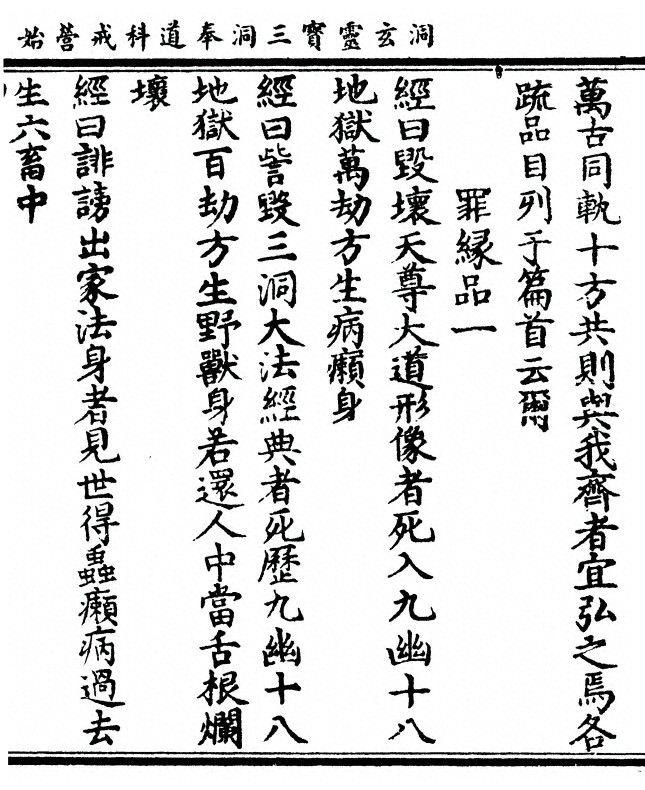 洞玄靈寶三洞奉道科戒營始
萬古同軌十方共則與我齊者宜弘之焉各
疏品目列于篇首云爾
罪緣品一
經曰毀壞天尊大道形像者死入九幽十八
地獄萬劫方生病癩身
經曰訾毀三洞大法經典者死歷九幽十八
地獄百劫方生野獸身若還人中當舌根爛
壞
經曰誹謗出家法身者見世得蟲癩病過去
生六畜中